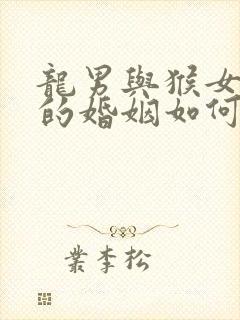 龍男與猴女
的婚姻如何
葉李松